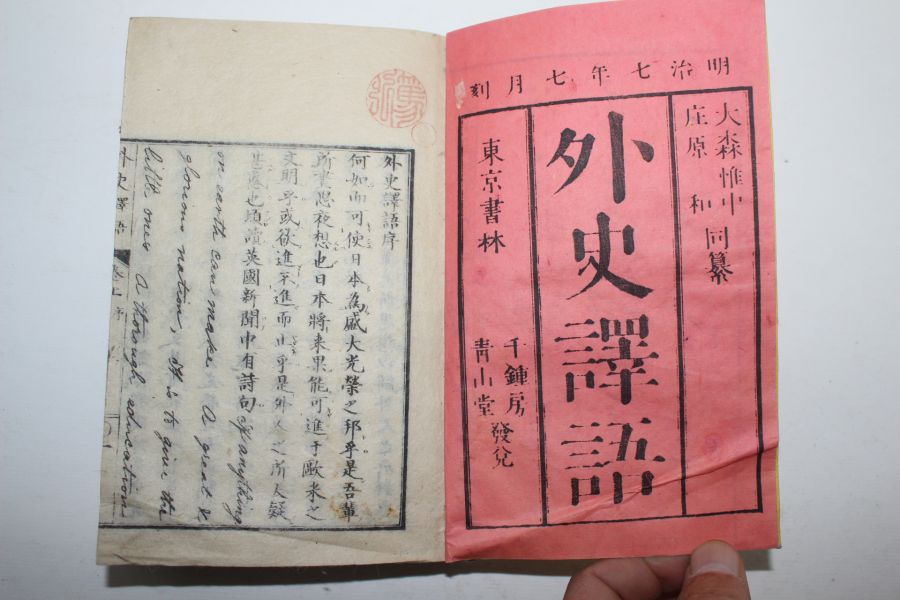 明治七年七月刻
大森惟中
庄原 和
同纂
外史譯語
東京書林
千鍾房
青山堂
發兌
外史譯語序
何如而可使日本為盛大光榮之邦乎是吾輩
所晝思夜想也日本將来果能可進于歐米之
文明乎或欲進不進而止乎是外人之所疑
也頃讀英國新聞中有詩句 If anything
on earth can make A great &
glorious nation, It is to give the
little ones A thorough education
外史譯語 卷上序